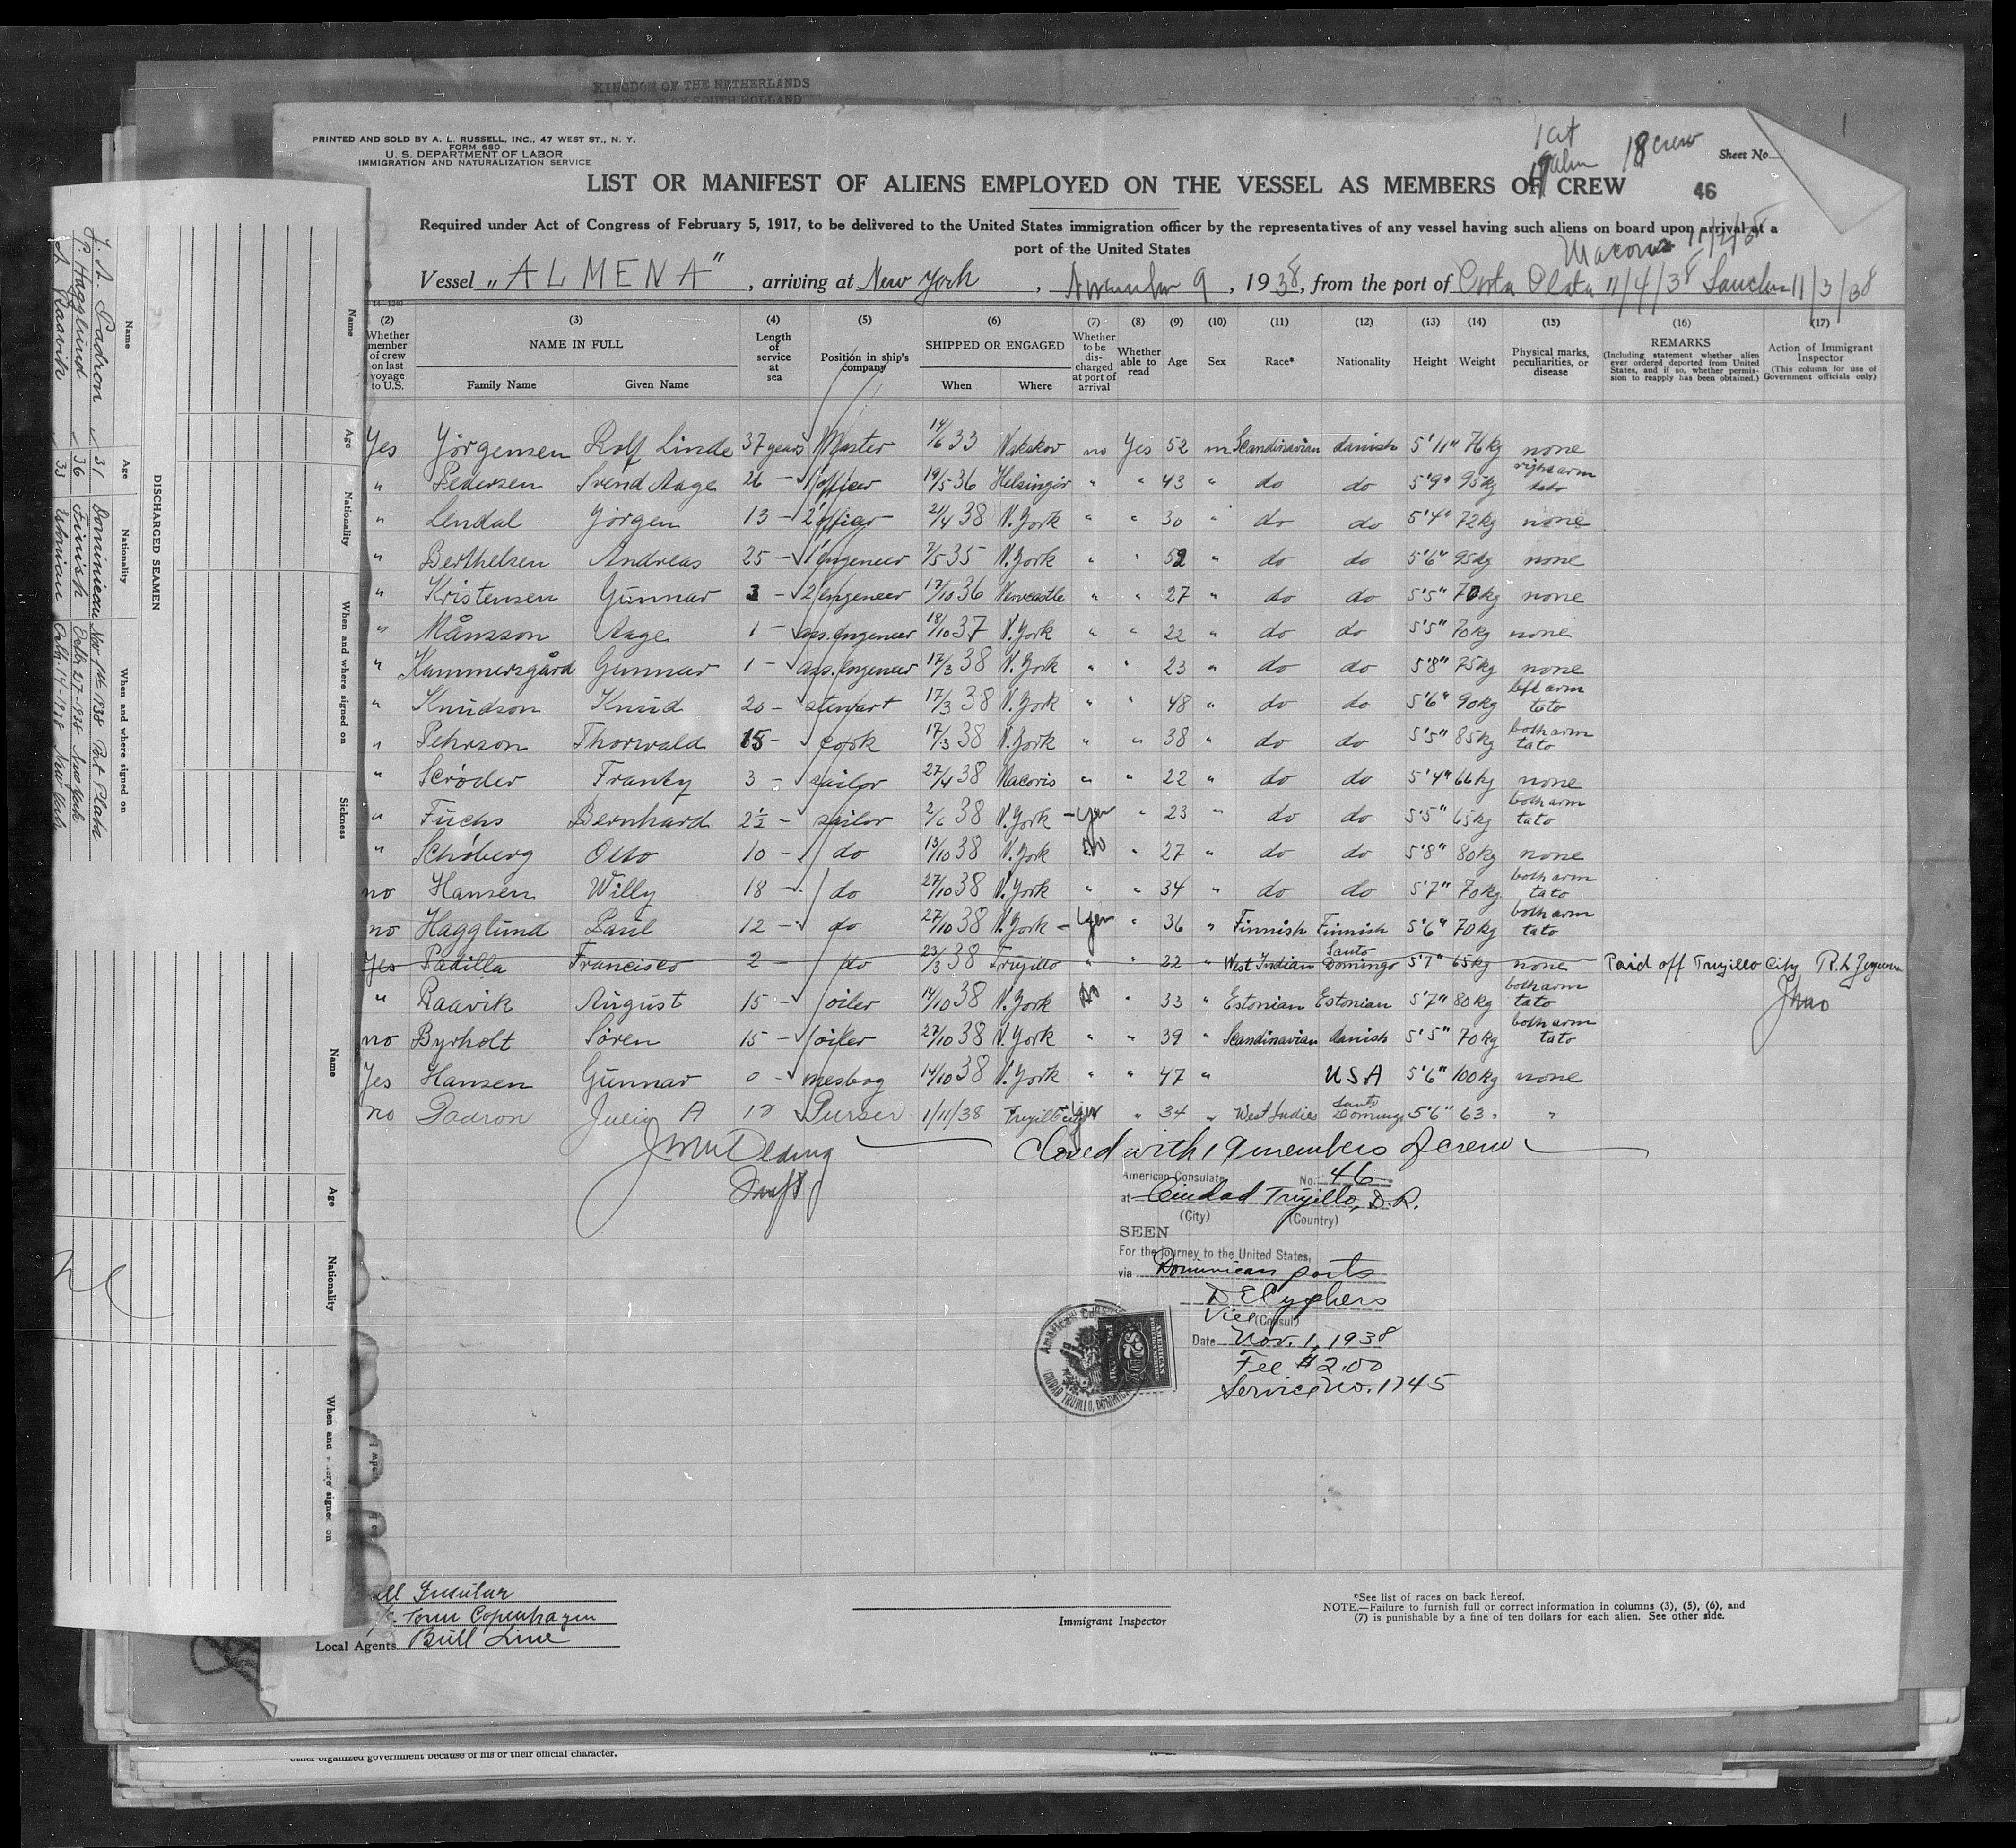 KINGDOM OF THE NETHERLANDS
SOUTH HOLLAND
PRINTED AND SOLD BY A. L. RUSSELL, INC., 47 WEST ST., N. Y.
FORM 680
U. S. DEPARTMENT OF LABOR
IMMIGRATION AND NATURALIZATION SERVICE
1 cit
18 crew
Sheet No.
LIST OR MANIFEST OF ALIENS EMPLOYED ON THE VESSEL AS MEMBERS OF CREW
46
Required under Act of Congress of February 5, 1917, to be delivered to the United States immigration officer by the representatives of any vessel having such aliens on board upon arrival at a
port of the United States
Macoris 11/2/38
Vessel "ALMENA", arriving at New York, November 9, 1938, from the port of Porta Plata 11/4/38 Sanchez 11/3/38
(2) (3) (4) (5) (6) (7) (8) (9) (10) (11) (12) (13) (14) (15) (16) (17)
Whether member of crew on last voyage to U.S. NAME IN FULL Family Name Given Name Length of service at sea Position in ship's company SHIPPED OR ENGAGED When Where Whether to be discharged at port of arrival Whether able to read Age Sex Race* Nationality Height Weight Physical marks, peculiarities, or disease REMARKS (Including statement whether alien ever ordered deported from United States, and if so, whether permission to reapply has been obtained.) Action of Immigrant Inspector (This column for use of Government officials only)
Yes Jörgensen Rolf Linde 37 years Master 14/6 33 Nakskov no Yes 52 m Scandinavian danish 5'11" 76kg none
" Pedersen Svend Aage 26 - 1 officer 19/5 36 Helsingör " " 43 " do do 5'9" 95kg right arm tato
" Lendal Jörgen 13 - 2 officer 21/4 38 N. York " " 30 " do do 5'4" 72kg none
" Berthelsen Andreas 25 - 1 engeneer 7/5 35 N. York " " 52 " do do 5'6" 95kg none
" Kristensen Gunnar 3 - 2 engeneer 17/10 36 Newcastle " " 27 " do do 5'5" 70kg none
" Månsson Aage 1 - ass. engeneer 18/10 37 N. York " " 22 " do do 5'5" 70kg none
" Kammersgård Gunnar 1 - ass. engeneer 17/3 38 N. York " " 23 " do do 5'8" 75kg none
" Knudson Knud 20 - stewart 17/3 38 N. York " " 48 " do do 5'6" 90kg left arm tato
" Pehrson Thorwald 15 - cook 17/3 38 N. York " " 38 " do do 5'5" 85kg both arm tato
" Scröder Frantz 3 - sailor 27/4 38 Macoris " " 22 " do do 5'4" 66kg none
" Fuchs Bernhard 2½ - sailor 2/6 38 N. York - Yes " 23 " do do 5'5" 65kg both arm tato
" Schöberg Otto 10 - do 13/10 38 N. York no " 27 " do do 5'8" 80kg none
no Hansen Willy 18 - do 27/10 38 N. York " " 34 " do do 5'7" 70kg both arm tato
no Hagglund Paul 12 - do 27/10 38 N. York - Yes " 36 " Finnish Finnish 5'6" 70kg both arm tato
Yes Padilla Francisco 2 - do 23/3 38 Trujillo " " 22 " West Indian Santo Domingo 5'7" 65kg none Paid off Trujillo City
" Raavik August 15 - oiler 14/10 38 N. York no " 33 " Estonian Estonian 5'7" 80kg both arm tato
no Byrholt Sören 15 - oiler 27/10 38 N. York " " 39 " Scandinavian danish 5'5" 70kg both arm tato
Yes Hansen Gunnar 0 - mesboy 14/10 38 N. York " " 47 " USA 5'6" 100kg none
no Padron Julio A 10 Purser 1/11/38 Trujillo City Yes " 34 " West Indies Santo Domingo 5'6" 63 " "
Closed with 19 members of crew
American Consulate No. 46
at Ciudad Trujillo, D.R.
(City) (Country)
SEEN
For the journey to the United States,
via Dominican ports
Vice (Consul)
Date Nov. 1, 1938
Fee $2.00
Service No. 1745
Insular
Torm Copenhagen
Local Agents Bull Line
Immigrant Inspector
*See list of races on back hereof.
NOTE.—Failure to furnish full or correct information in columns (3), (5), (6), and
(7) is punishable by a fine of ten dollars for each alien. See other side.
other organized government because of his or their official character.
DISCHARGED SEAMEN
Name Age Nationality When and where signed on
J. A. Padron 31 Dominican Nov 1th 1938 Port Plata
P. Hagglund 36 Finnish Octb. 27-1938 New York
A. Raavik 33 Estonian Octb. 14-1938 New York
Name Age Nationality When and where signed on Sickness
Name Age Nationality When and where signed on